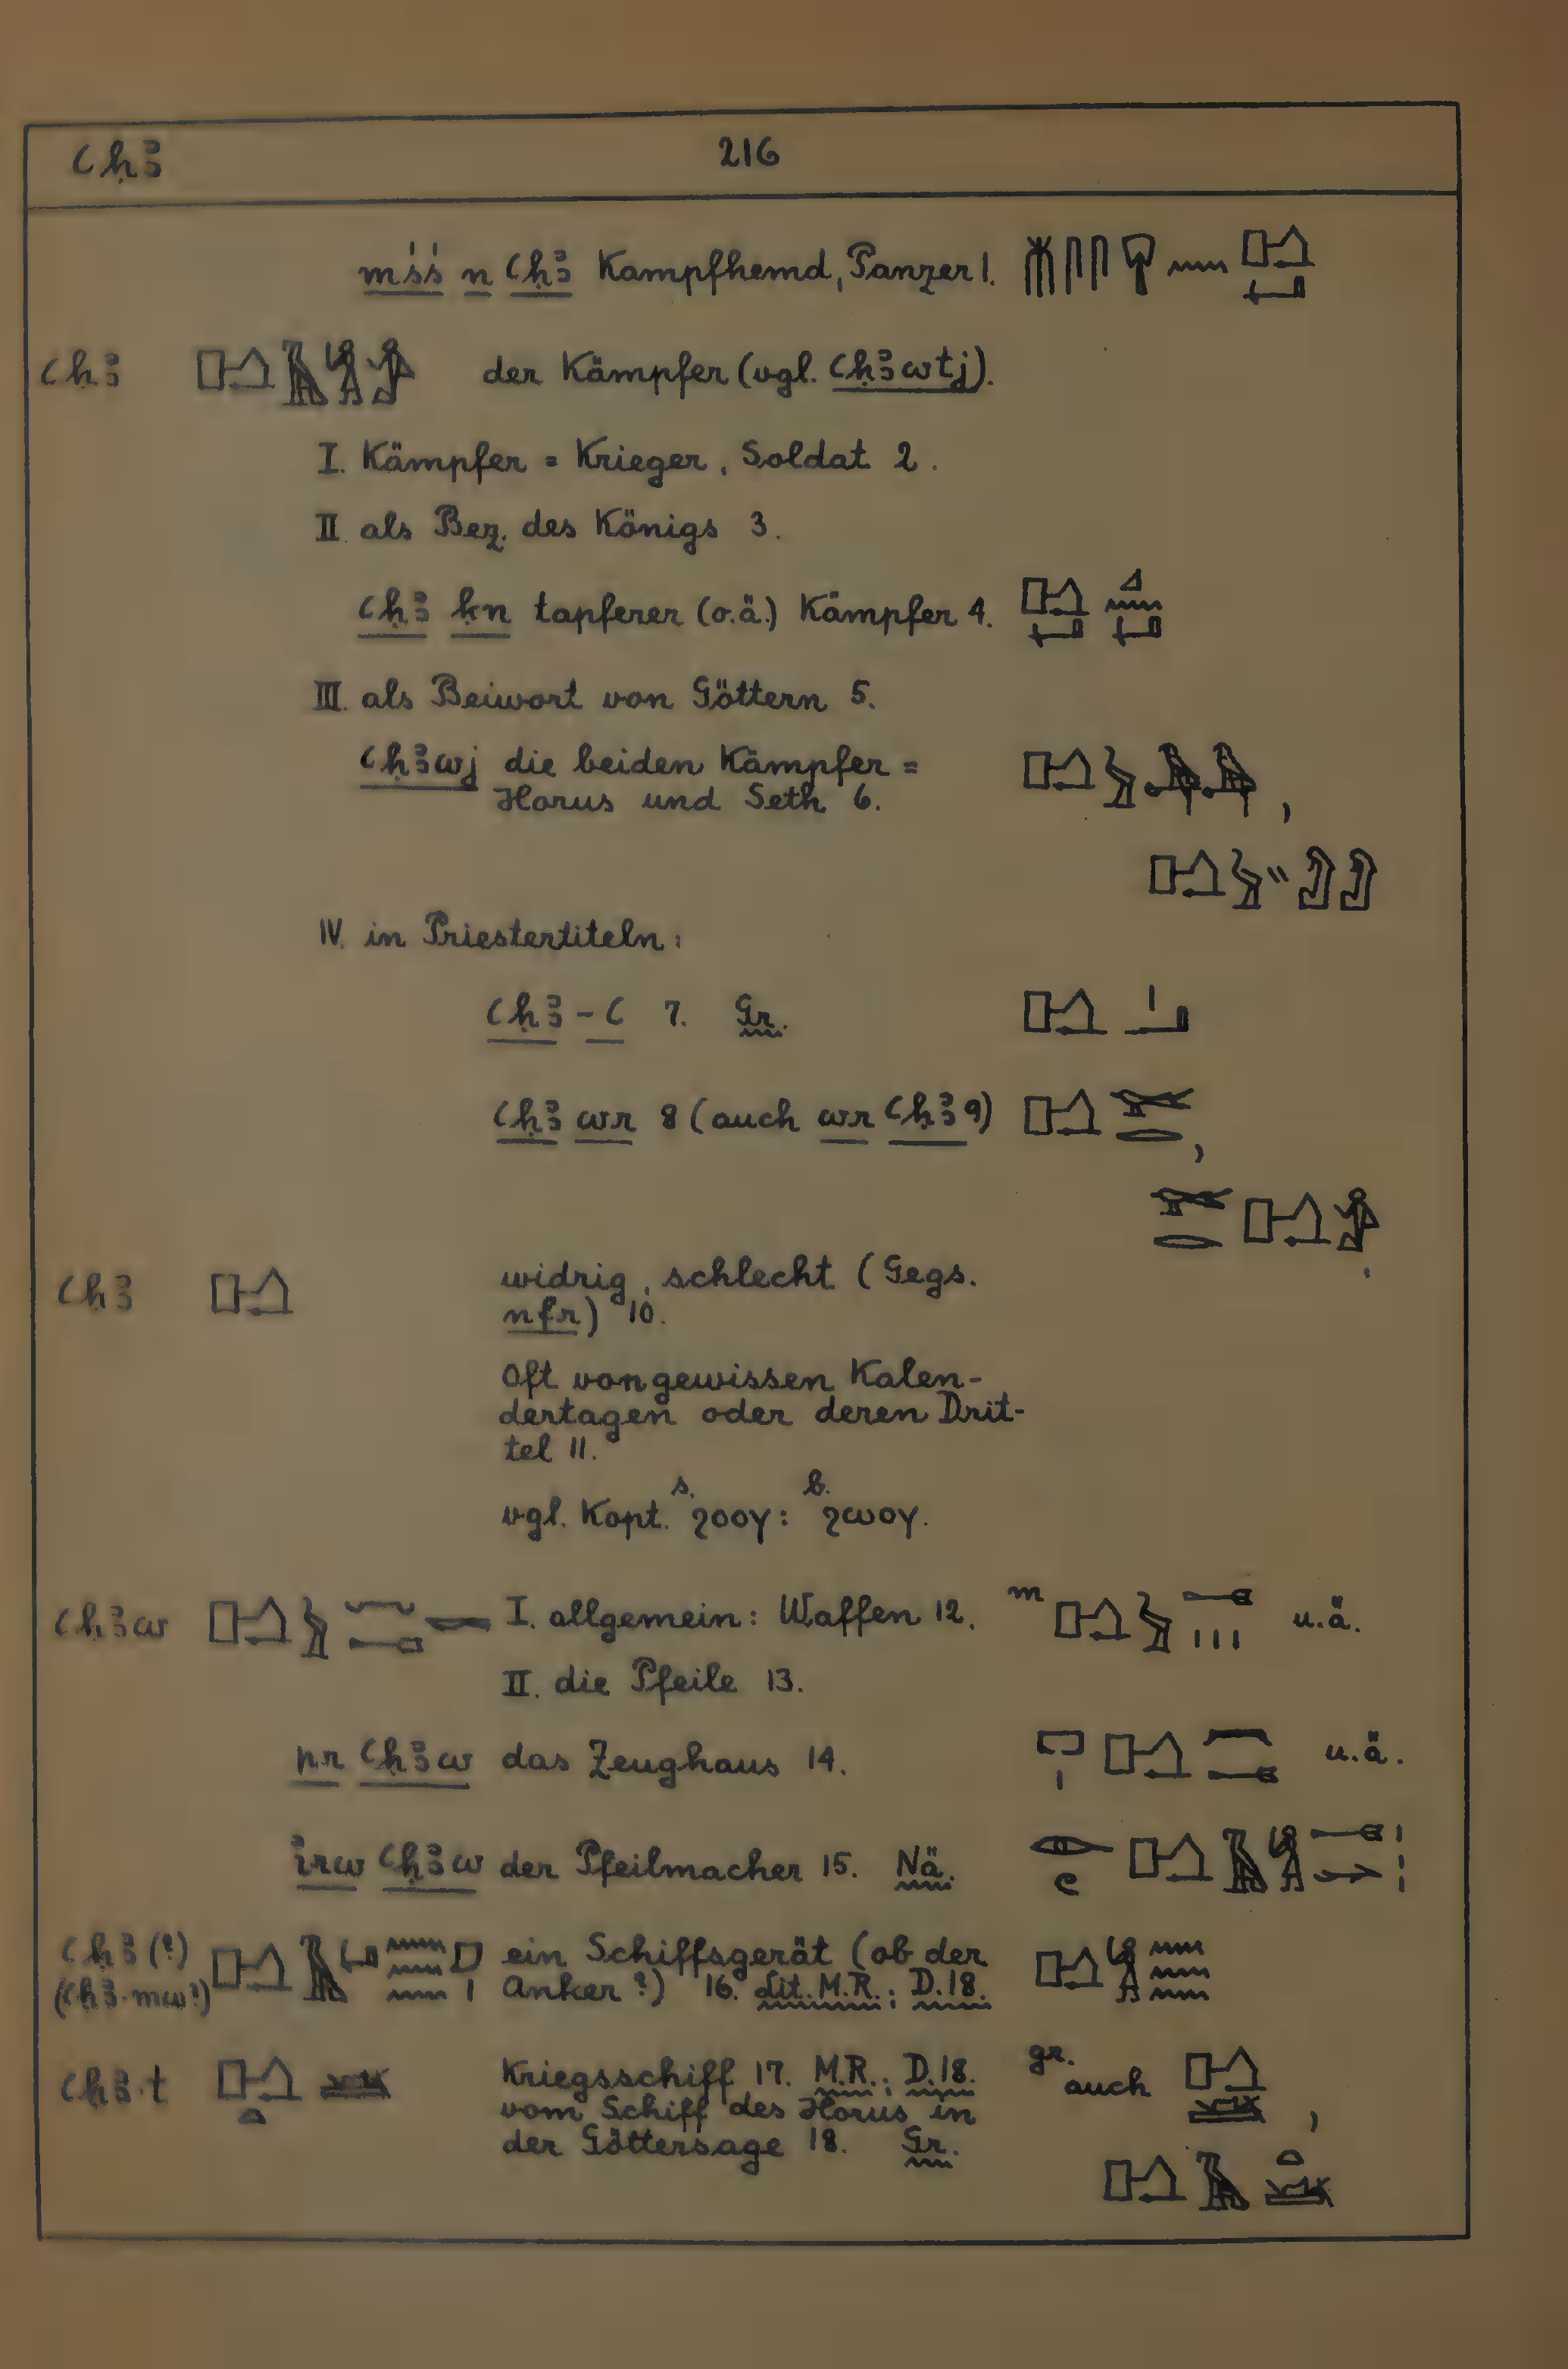 ꜥḥꜣ 216
mśś n ꜥḥꜣ Kampfhemd, Panzer 1.
ꜥḥꜣ der Kämpfer (vgl. ꜥḥꜣwtj).
I. Kämpfer = Krieger, Soldat 2.
II. als Bez. des Königs 3.
ꜥḥꜣ ḳn tapferer (o.ä.) Kämpfer 4.
III. als Beiwort von Göttern 5.
ꜥḥꜣwj die beiden Kämpfer =
Horus und Seth 6.
IV. in Priestertiteln:
ꜥḥꜣ-ꜥ 7. Gr.
ꜥḥꜣ wr 8 (auch wr ꜥḥꜣ 9)
ꜥḥꜣ widrig, schlecht (Gegs.
nfr) 10.
Oft von gewissen Kalen-
dertagen oder deren Drit-
tel 11.
vgl. Kopt. s. ϩοογ: b. ϩωογ.
ꜥḥꜣw I. allgemein: Waffen 12. m u.ä.
II. die Pfeile 13.
pr ꜥḥꜣw das Zeughaus 14. u.ä.
irw ꜥḥꜣw der Pfeilmacher 15. Nä.
ꜥḥꜣ (?) ein Schiffsgerät (ob der
(ꜥḥꜣ-mw?) Anker?) 16. Lit. M.R.; D.18.
ꜥḥꜣ.t Kriegsschiff 17. M.R.; D.18. gr. auch
vom Schiff des Horus in
der Göttersage 18. Gr.